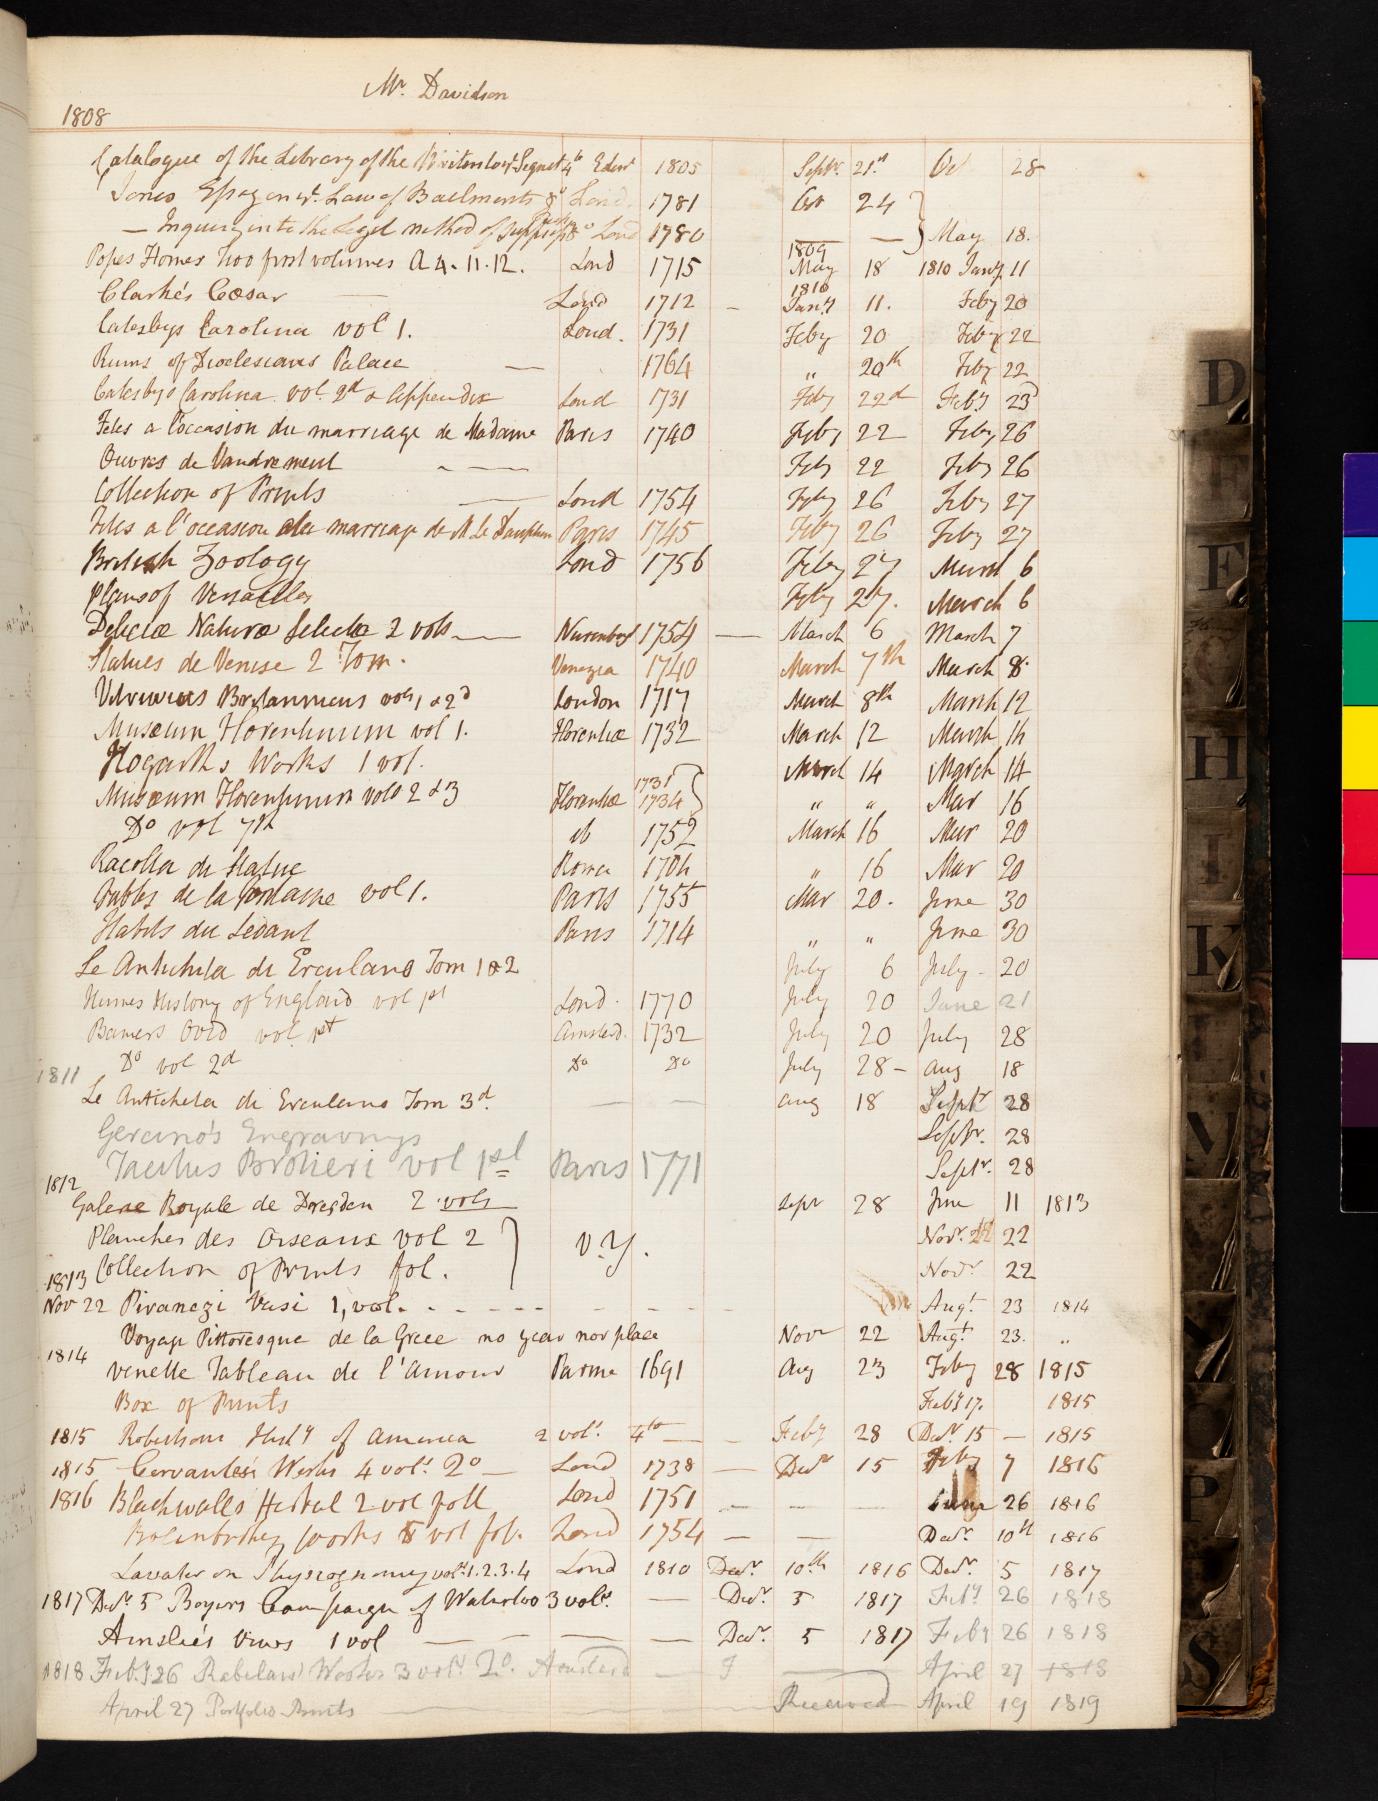 Mr. Davidson
1808
Catalogue of the Library of the Writers to ye Signet 4to Edinr 1805 Septr. 21st Oct 28
Jones Essay on ye. Law of Bailments 8o Lond. 1781 Oct 24
— Inquiry into the Legal method of Suppressg Riots 8o Lond 1780 — May 18.
Popes Homer two first volumes A 4. 11. 12. Lond 1715 1809 May 18 1810 Jany 11
Clarke's Cæsar Lond 1712 — 1810 Jany 11. Feby 20
Catesbys Carolina vol 1. Lond. 1731 Feby 20 Feby 22
Ruins of Dioclesians Palace — 1764 " 20th Feby 22
Catesbys Carolina vol. 2d & Appendix Lond 1731 Feby 22d Feby 23
Fetes a l'occasion du marriage de Madame Paris 1740 Feby 22 Feby 26
Œuvres de Vandremeul — Feby 22 Feby 26
Collection of Prints — Lond 1754 Feby 26 Feby 27
Fetes a l'occasion du marriage de M Le Dauphin Paris 1745 Feby 26 Feby 27
British Zoology Lond 1756 Feby 27 March 6
Plans of Versailles Feby 27. March 6
Deliciæ Naturæ Selectæ 2 vols — Nurenberg 1754 — March 6 March 7
Statues de Venise 2 Tom. Venezia 1740 March 7th March 8.
Vitruvius Britannicus vols 1 & 2d London 1717 March 8th March 12
Musæum Florentinum vol 1. Florentiæ 1732 March 12 March 14
Hogarth's Works 1 vol. March 14 March 14
Musæum Florentinum vols 2 & 3 Florentiæ 1731 1734 " " Mar 16
Do vol 7th ib 1752 March 16 Mar 20
Racolta di Statue Roma 1704 " 16 Mar 20
Fables de la Fontaine vol 1. Paris 1755 Mar 20. June 30
Habits du Levant Paris 1714 " " June 30
Le Antichita di Erculano Tom 1 & 2 July 6 July - 20
Humes History of England vol 1st Lond. 1770 July 20 June 21
Baniers Ovid vol 1st Amsterd. 1732 July 20 July 28
Do vol 2d Do Do July 28 - Aug 18
1811
Le Antichita di Erculano Tom 3d. — — Aug 18 Septr 28
Gercino's Engravings Septr. 28
Tacitus Brotieri vol 1st Paris 1771 Septr. 28
1812
Galerie Royale de Dresden 2 vols Sept 28 June 11 1813
Planches des Oiseaux vol 2 V.Y. Novr. 22
1813 Collection of Prints fol. Novr 22
Nov 22 Piranezi Vasi 1, vol. - - - - - - Augt. 23 1814
Voyage Pittoresque de la Grece no year nor place Novr 22 Augt. 23. "
1814
Venette Tableau de l'amour Parme 1691 Aug 23 Feby 28 1815
Box of Prints Feby 17. 1815
1815 Robertsons Histy of America 2 vols. 4to — — Feby 28 Decr. 15 — 1815
1815 Cervantes's Works 4 vols. 2o — Lond 1738 — Decr 15 Feby 7 1816
1816 Blackwalls Herbal 2 vol foll Lond 1751 — — — June 26 1816
Bolinbrokes works 5 vol fol. Lond 1754 — — Decr. 10th 1816
Lavater on Physiognomy vols. 1.2.3.4 Lond 1810 Decr. 10th 1816 Decr. 5 1817
1817 Decr. 5 Boyers Campaign of Waterloo 3 vols. — Decr. 5 1817 Feby 26 1818
Ainslie's Views 1 vol — — — — Decr. 5 1817 Feby 26 1818
1818 Feby 26 Rabelais' Works 3 vols 2o. Amsterd — F — April 27 1818
April 27 Portfolio Prints — Received April 19 1819
D
E
F
G
H
I
K
L
M
N
O
P
S